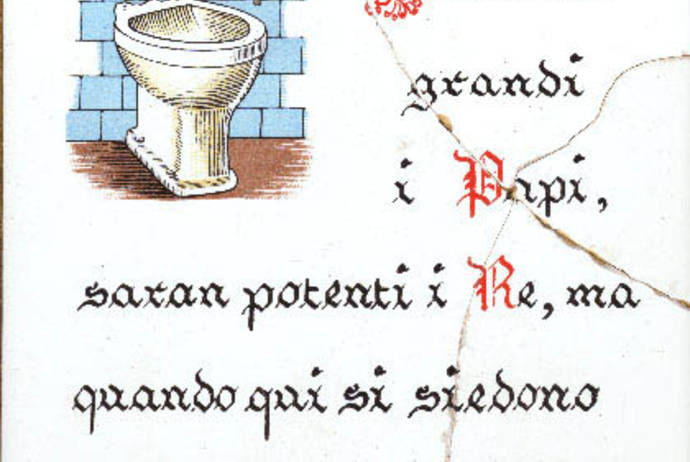 grandi
i Papi,
saran potenti i Re, ma
quando qui si siedono